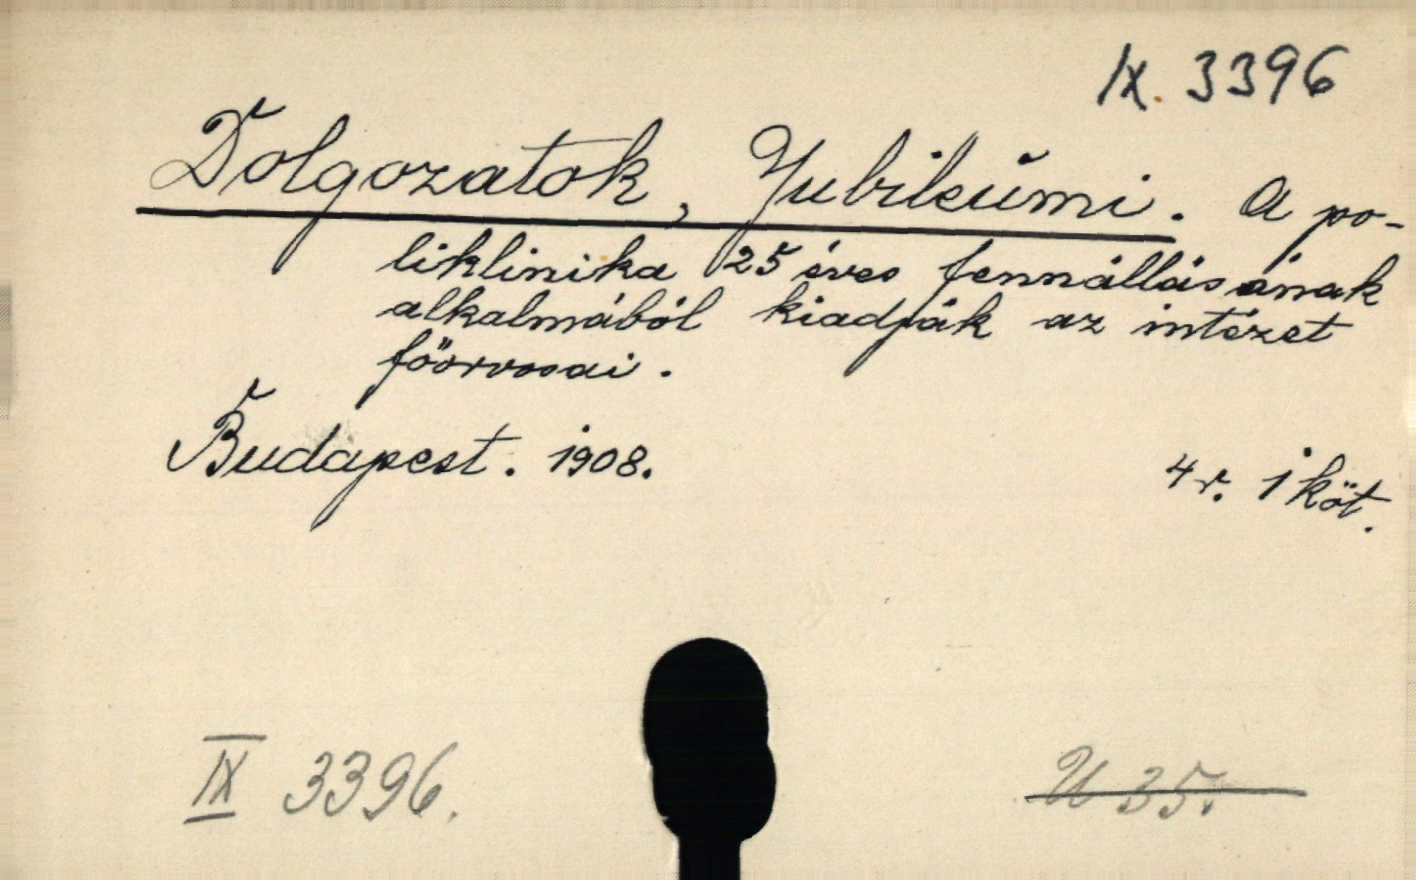 IX. 3396
Dolgozatok, Jubileumi. A po-
liklinika 25 éves fennállásának
alkalmából kiadják az intézet
főorvosai.
Budapest. 1908.
4 r. 1 köt.
IX 3396.
U 35.